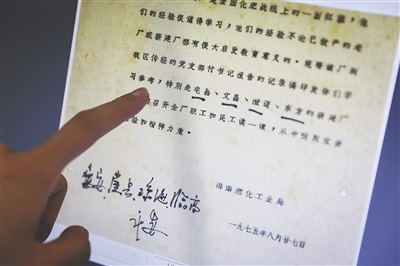 是全国化肥战线上的一面红旗，他
们的经验很值得学习，他们的经验不论已投产的老
厂或新建厂都有很大启发教育意义的。现将该厂
我区传经的党支部付书记报告的记录稿印发你们学
习参考，特别是屯昌、文昌、澄迈、东方的新建厂
要召开全厂职工和民工读一读，从中吸取宝贵
经验和精神力量。
海南燃化工业局
一九七五年八月廿七日
琼海、临高